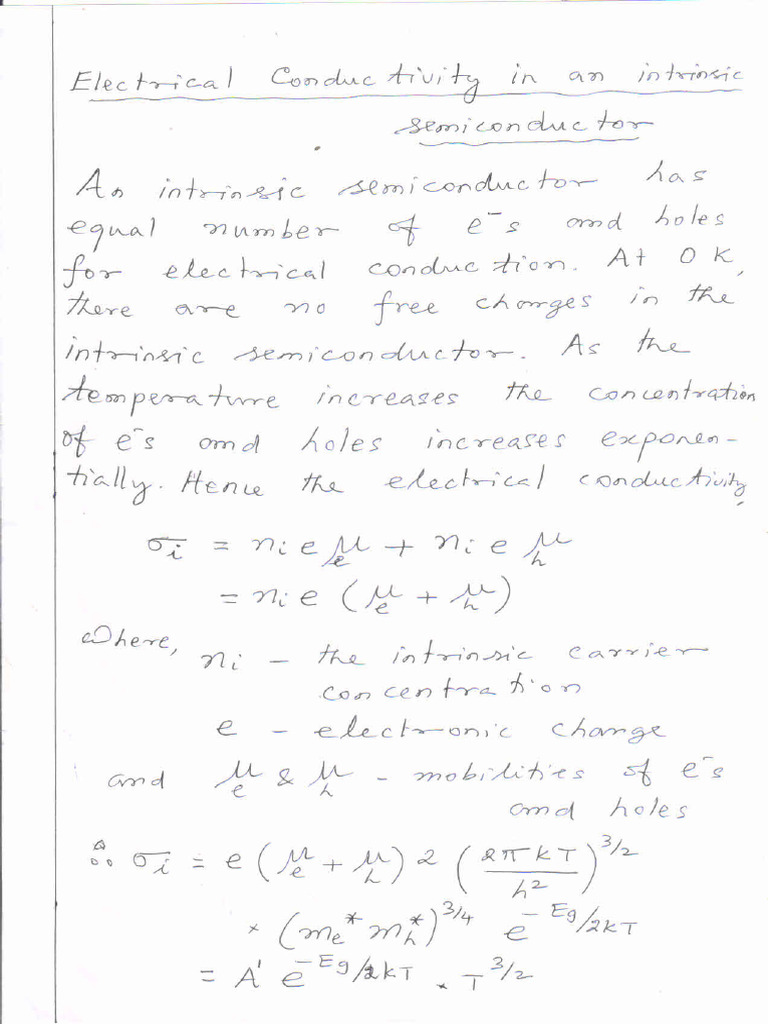 Electrical Conductivity in an intrinsic
semiconductor
An intrinsic semiconductor has
equal number of e⁻s and holes
for electrical conduction. At 0 K,
there are no free charges in the
intrinsic semiconductor. As the
temperature increases the concentration
of e⁻s and holes increases exponen-
tially. Hence the electrical conductivity,
σi = ni e μe + ni e μh
= ni e (μe + μh)
Where,
ni - the intrinsic carrier
concentration
e - electronic charge
and μe & μh - mobilities of e⁻s
and holes
∴ σi = e (μe + μh) 2 (2πkT/h²)^3/2
× (me* mh*)^3/4 e^-Eg/2kT
= A' e^-Eg/2kT × T^3/2